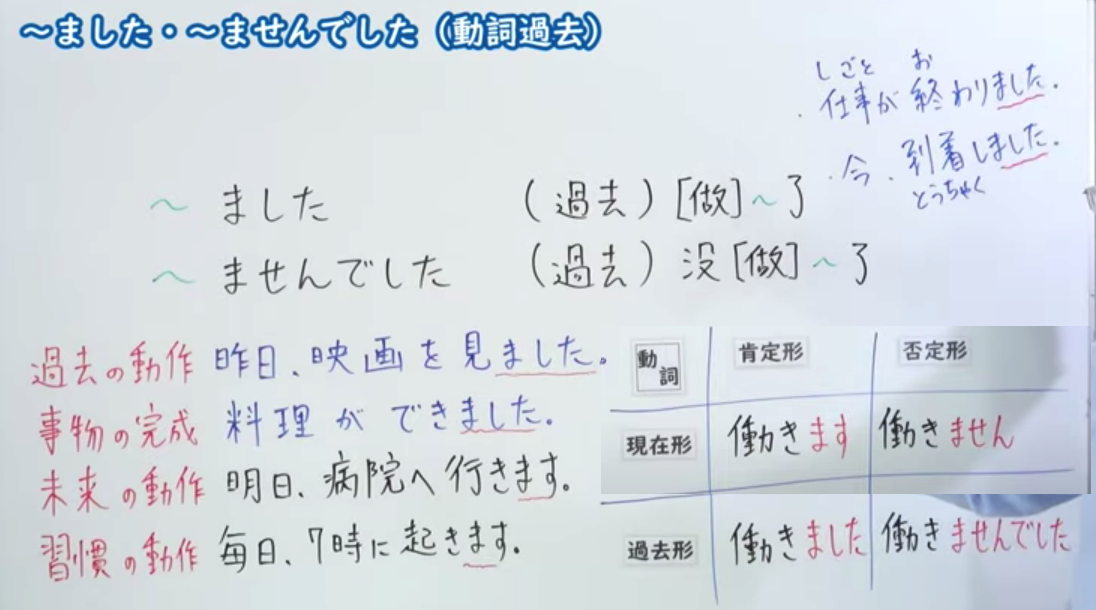 ～ました・～ませんでした（動詞過去）
しごと お
仕事が終わりました。
今、到着しました。
とうちゃく
～ました （過去）[做]～了
～ませんでした （過去）没[做]～了
過去の動作 昨日、映画を見ました。
事物の完成 料理ができました。
未来の動作 明日、病院へ行きます。
習慣の動作 毎日、7時に起きます。
動詞 肯定形 否定形
現在形 働きます 働きません
過去形 働きました 働きませんでした